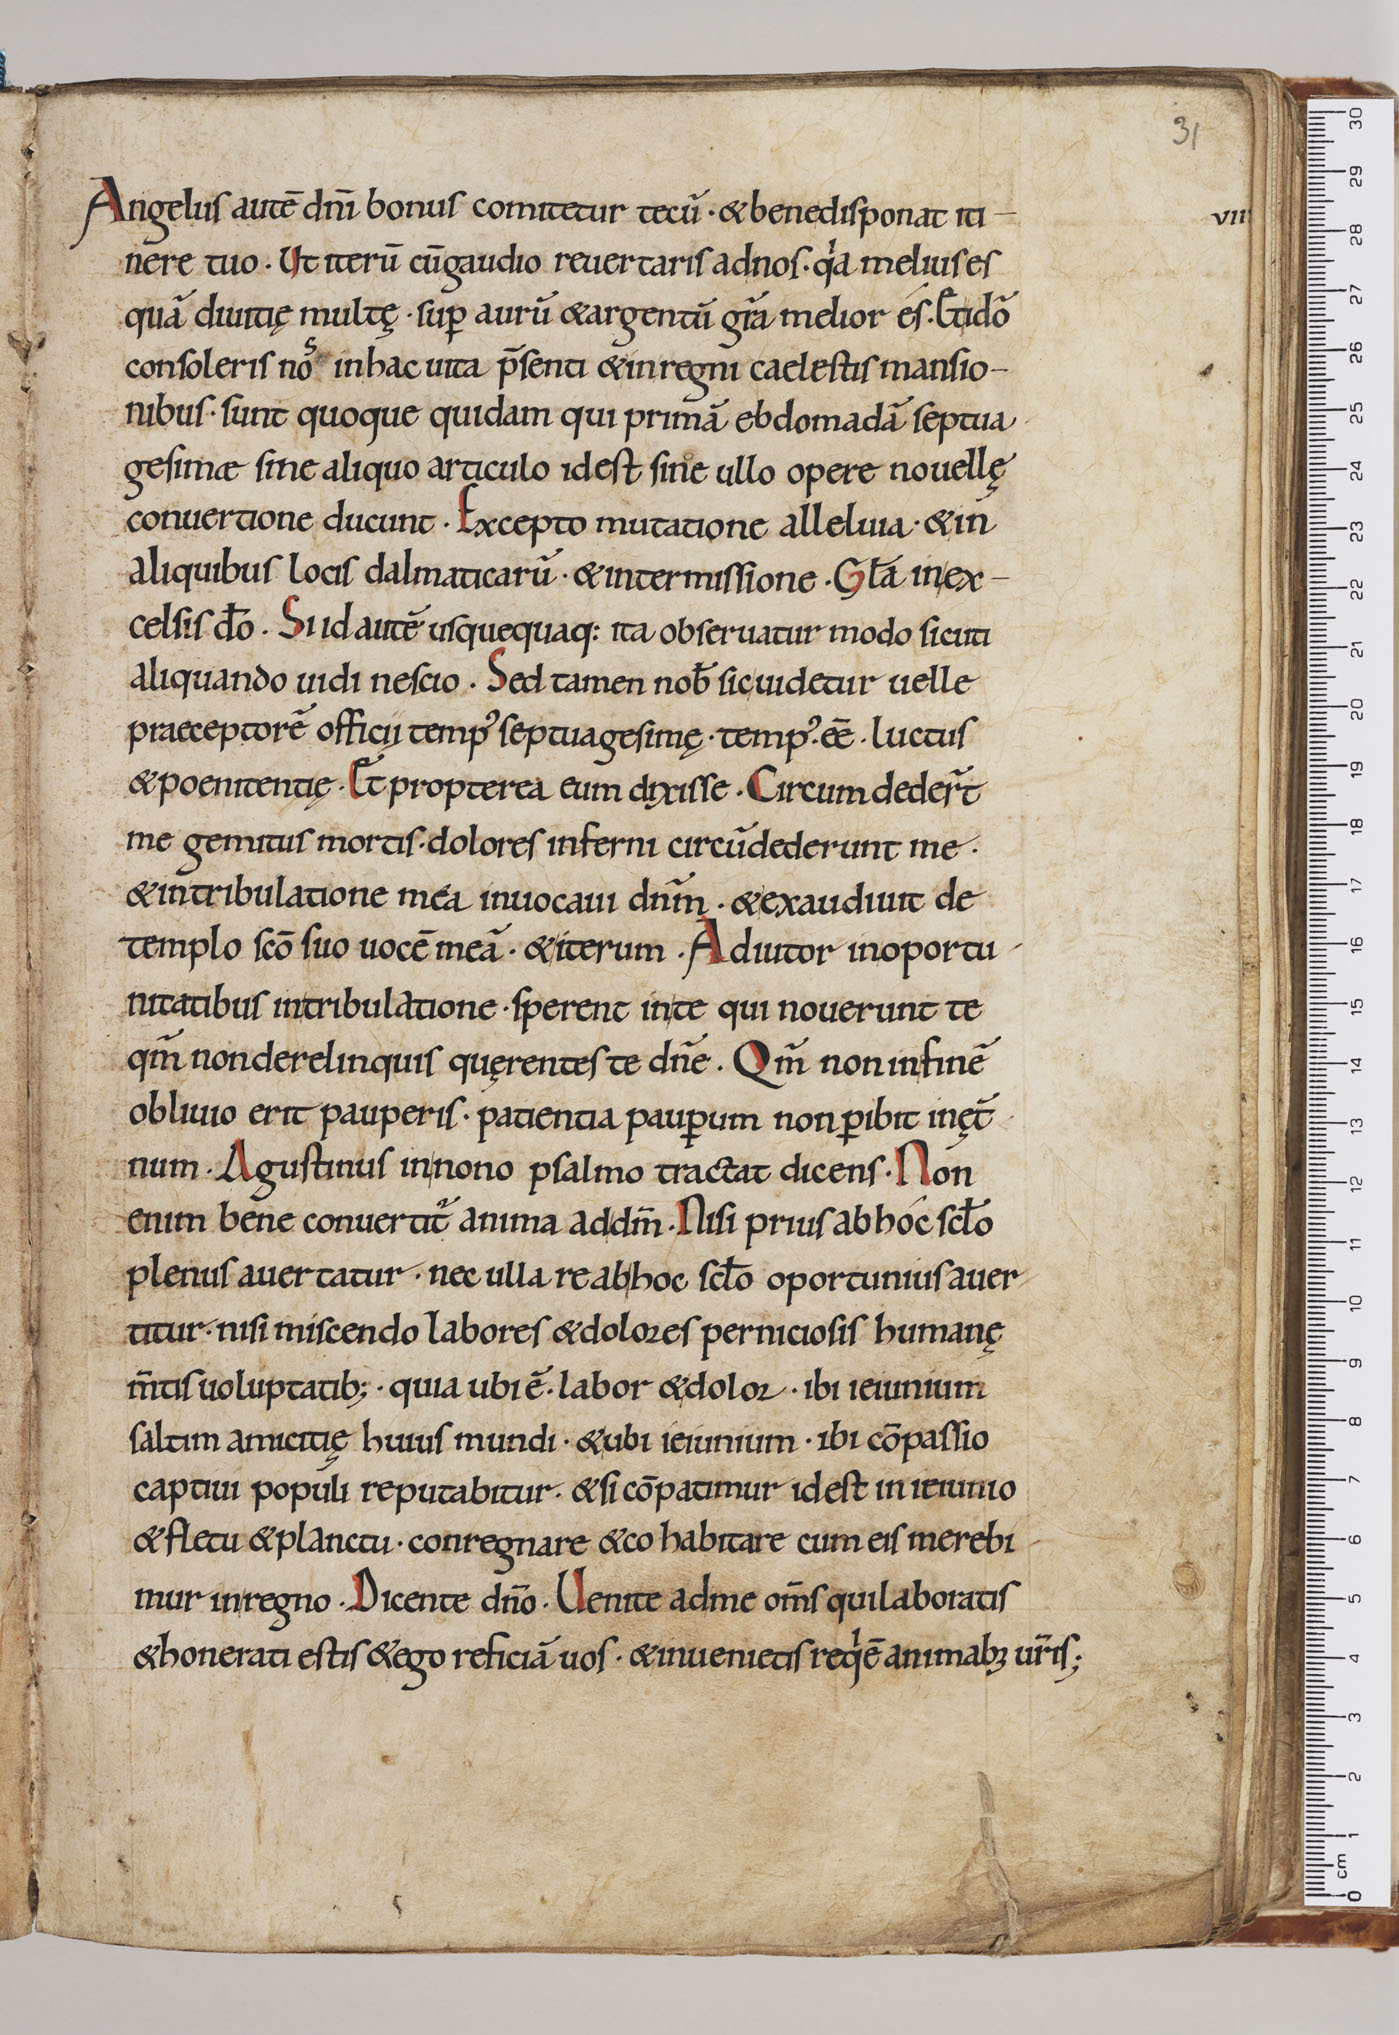 31
Angelus autē dn̄i bonus comitetur tecū · & benedisponat iti–
vii
nere tuo · Ut iterū cūgaudio reuertaris adnos · qͥa melius es
quā diuitię multę · sup̄ aurū & argentū gr̄a melior és · Et idō
consoleris nos̄ inhac uita p̄senti & inregni caelestis mansio–
nibus · sunt quoque quidam qui primā ebdomadā septua
gesimæ sine aliquo articulo idest sine ullo opere nouellę
conuertione ducunt · Excepto mutatione alleluia · & in
aliquibus locis dalmaticarū · & intermissione · Gła inex–
celsis do̅ · Si id autē usquequaq: ita obseruatur modo sicuti
aliquando uidi nescio · Sed tamen nob̄ sic uidetur uelle
praeceptorē officij temp᾽ septuagesimę · temp᾽ · eē · luctus
& poenitentię · Et propterea eum dixisse · Circumdeder̄t
me gemitus mortis · dolores inferni circūdederunt me ·
& intribulatione mea inuocaui dn̄m · & exaudiuit de
templo scō suo uocē meā · & iterum · Adiutor inoportu
nitatibus intribulatione · sperent inte qui nouerunt te
qm̄ nonderelinquis quęrentes te dn̄e · Qm̄ non infinē
obliuio erit pauperis · patientia paup̄um non p̄ibit inęt̄
num · Agustinus innono psalmo tractat dicens · Non
enim bene conuertit᷑ anima addm̄ · Nisi prius abhóc scło
plenus auertatur · nec ulla re abhoc scło oportunius auer
titur · nisi miscendo labores & dolores perniciosis humanę
m̄tis uoluptatib; · quia ubi ē · labor & dolor · ibi ieiunium
saltim amicitię huius mundi · & ubi ieiunium · ibi cōpassio
captiui populi reputabitur · & si cōpatimur idest in ieiunio
& fletu & planctu · conregnare & cohabitare cum eis merebi
mur inregno · Dicente dn̄o · Uenite adme om̄s qui laboratis
& honerati estis & ego reficiā uos · & inuenietis reqͥē animabꝫ ur̄is;